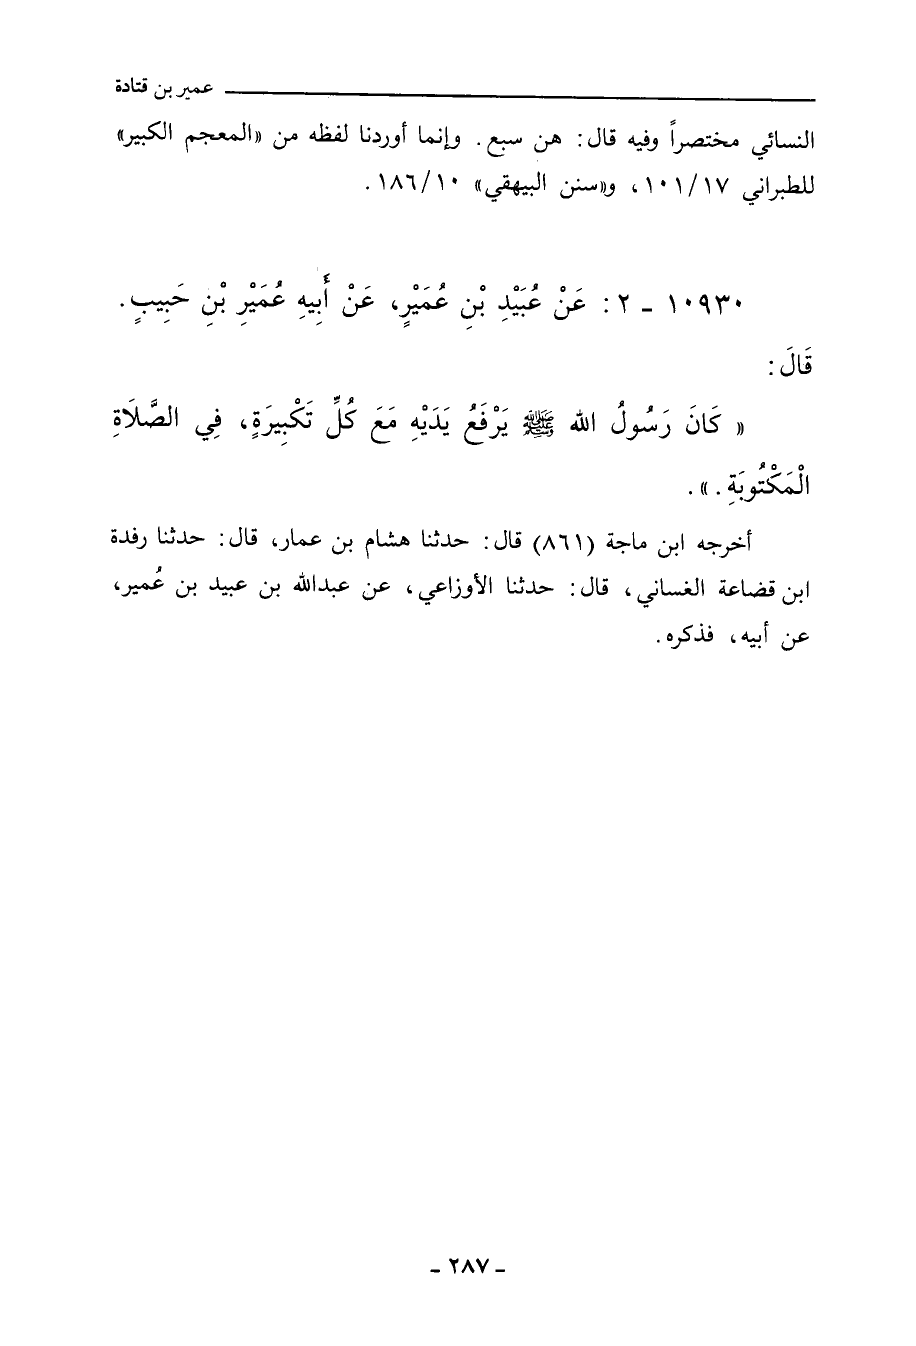 عمير بن قتادة
النسائي مختصراً وفيه قال: هن سبع. وإنما أوردنا لفظه من «المعجم الكبير»
للطبراني ١٠١/١٧، و«سنن البيهقي» ١٨٦/١٠.
١٠٩٣٠ - ٢: عَنْ عُبَيْدِ بْنِ عُمَيْرٍ، عَنْ أَبِيهِ عُمَيْرِ بْنِ حَبِيبٍ.
قَالَ:
« كَانَ رَسُولُ الله ﷺ يَرْفَعُ يَدَيْهِ مَعَ كُلِّ تَكْبِيرَةٍ، فِي الصَّلَاةِ
الْمَكْتُوبَةِ.».
أخرجه ابن ماجة (٨٦١) قال: حدثنا هشام بن عمار، قال: حدثنا رفدة
ابن قضاعة الغساني، قال: حدثنا الأوزاعي، عن عبدالله بن عبيد بن عُمير،
عن أبيه، فذكره.
- ٢٨٧ -